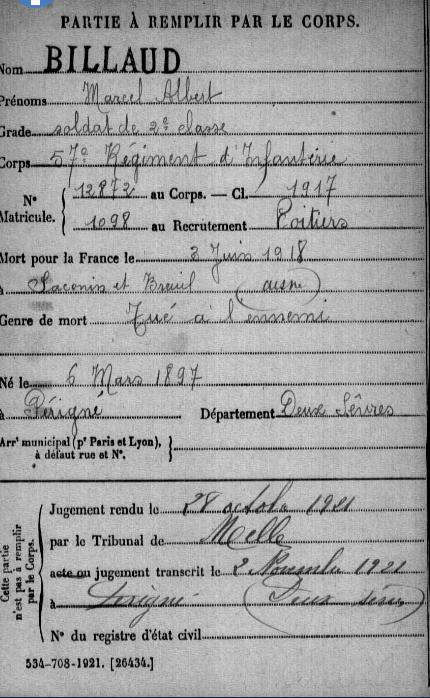 PARTIE À REMPLIR PAR LE CORPS.
Nom BILLAUD
Prénoms Marcel Albert
Grade soldat de 2e classe
Corps 57e Régiment d'Infanterie
N° Matricule. { 12872 au Corps. — Cl. 1917
1098 au Recrutement Poitiers
Mort pour la France le 2 Juin 1918
à Saconin et Breuil (aisne)
Genre de mort Tué à l'ennemi
Né le 6 Mars 1897
à Périgné Département Deux Sèvres
Arrt municipal (pr Paris et Lyon), à défaut rue et N°. }
Cette partie n'est pas à remplir par le Corps.
Jugement rendu le 28 octobre 1921
par le Tribunal de Melle
acte ou jugement transcrit le 2 Novembre 1921
à Périgné (Deux Sèvres)
N° du registre d'état civil
534-708-1921. [26434.]